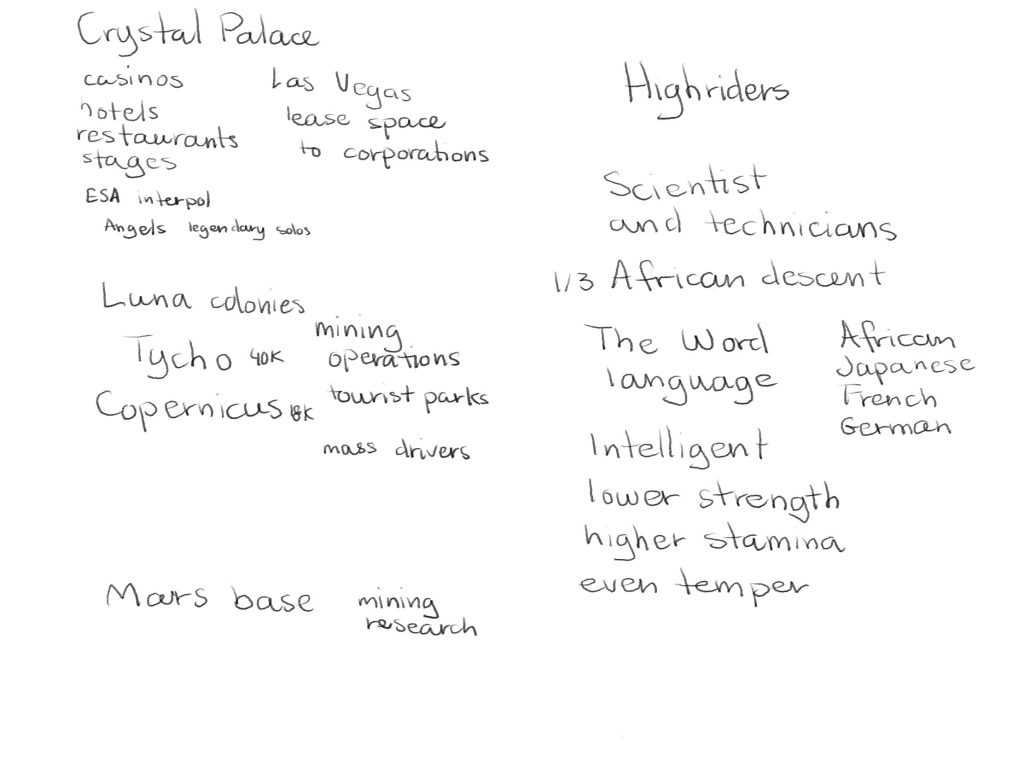 Crystal Palace
casinos
hotels
restaurants
stages
Las Vegas
lease space
to corporations
ESA interpol
Angels legendary solos
Luna colonies
Tycho 40K
Copernicus 18K
mining
operations
tourist parks
mass drivers
Mars base
mining
research
Highriders
Scientist
and technicians
1/3 African descent
The Word
language
African
Japanese
French
German
Intelligent
lower strength
higher stamina
even temper